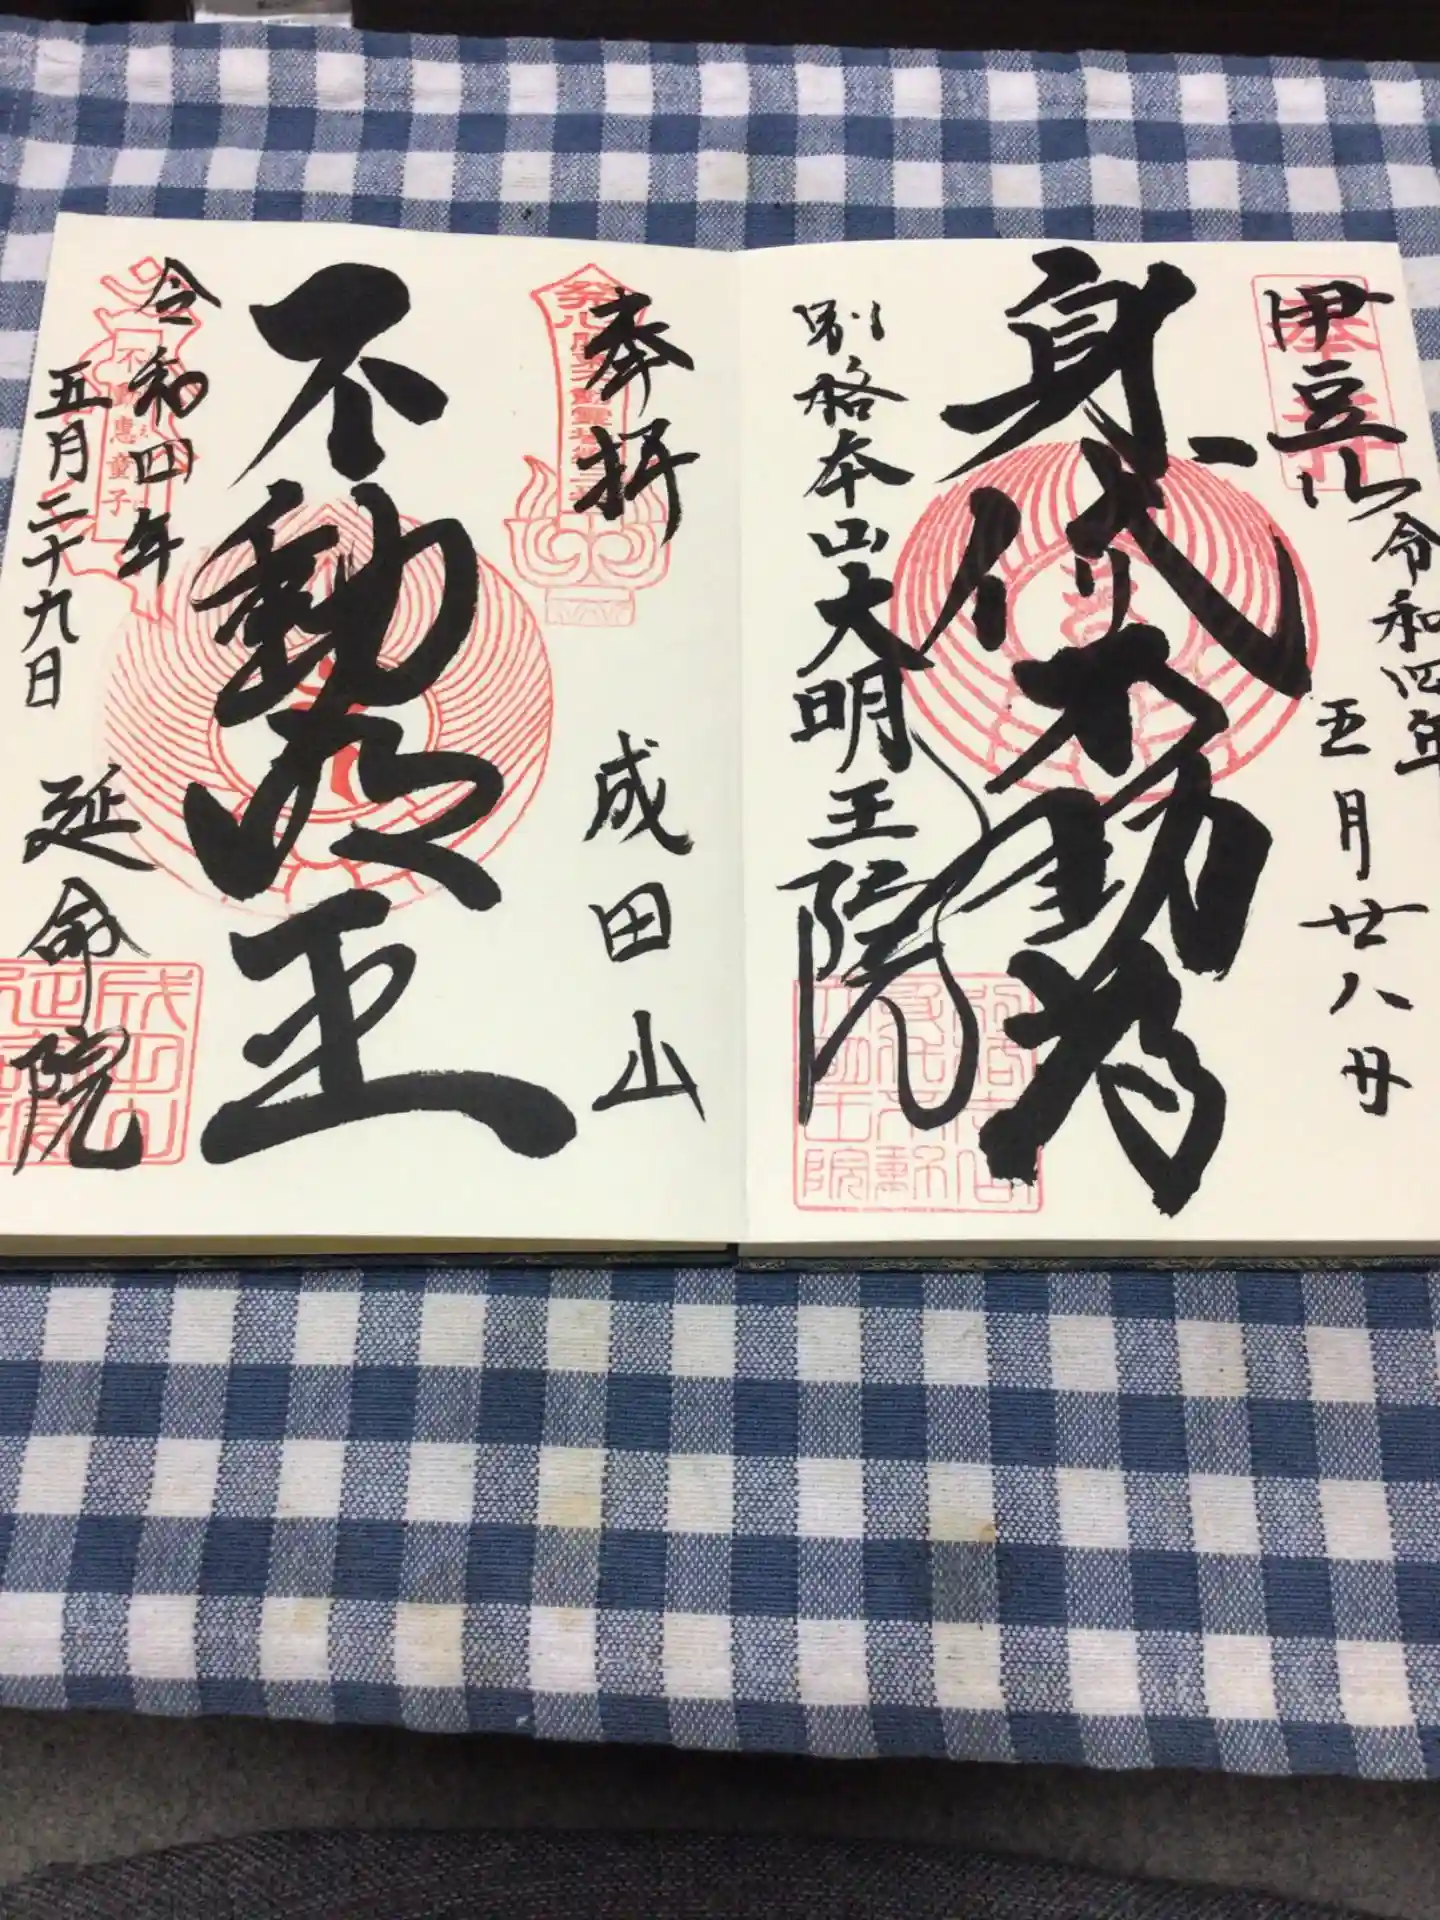 伊豆山
令和四年
五月廿八日
身代不動尊
別格本山大明王院
奉拝
成田山
不動明王
令和四年
五月二十九日
延命院
不動恵童子